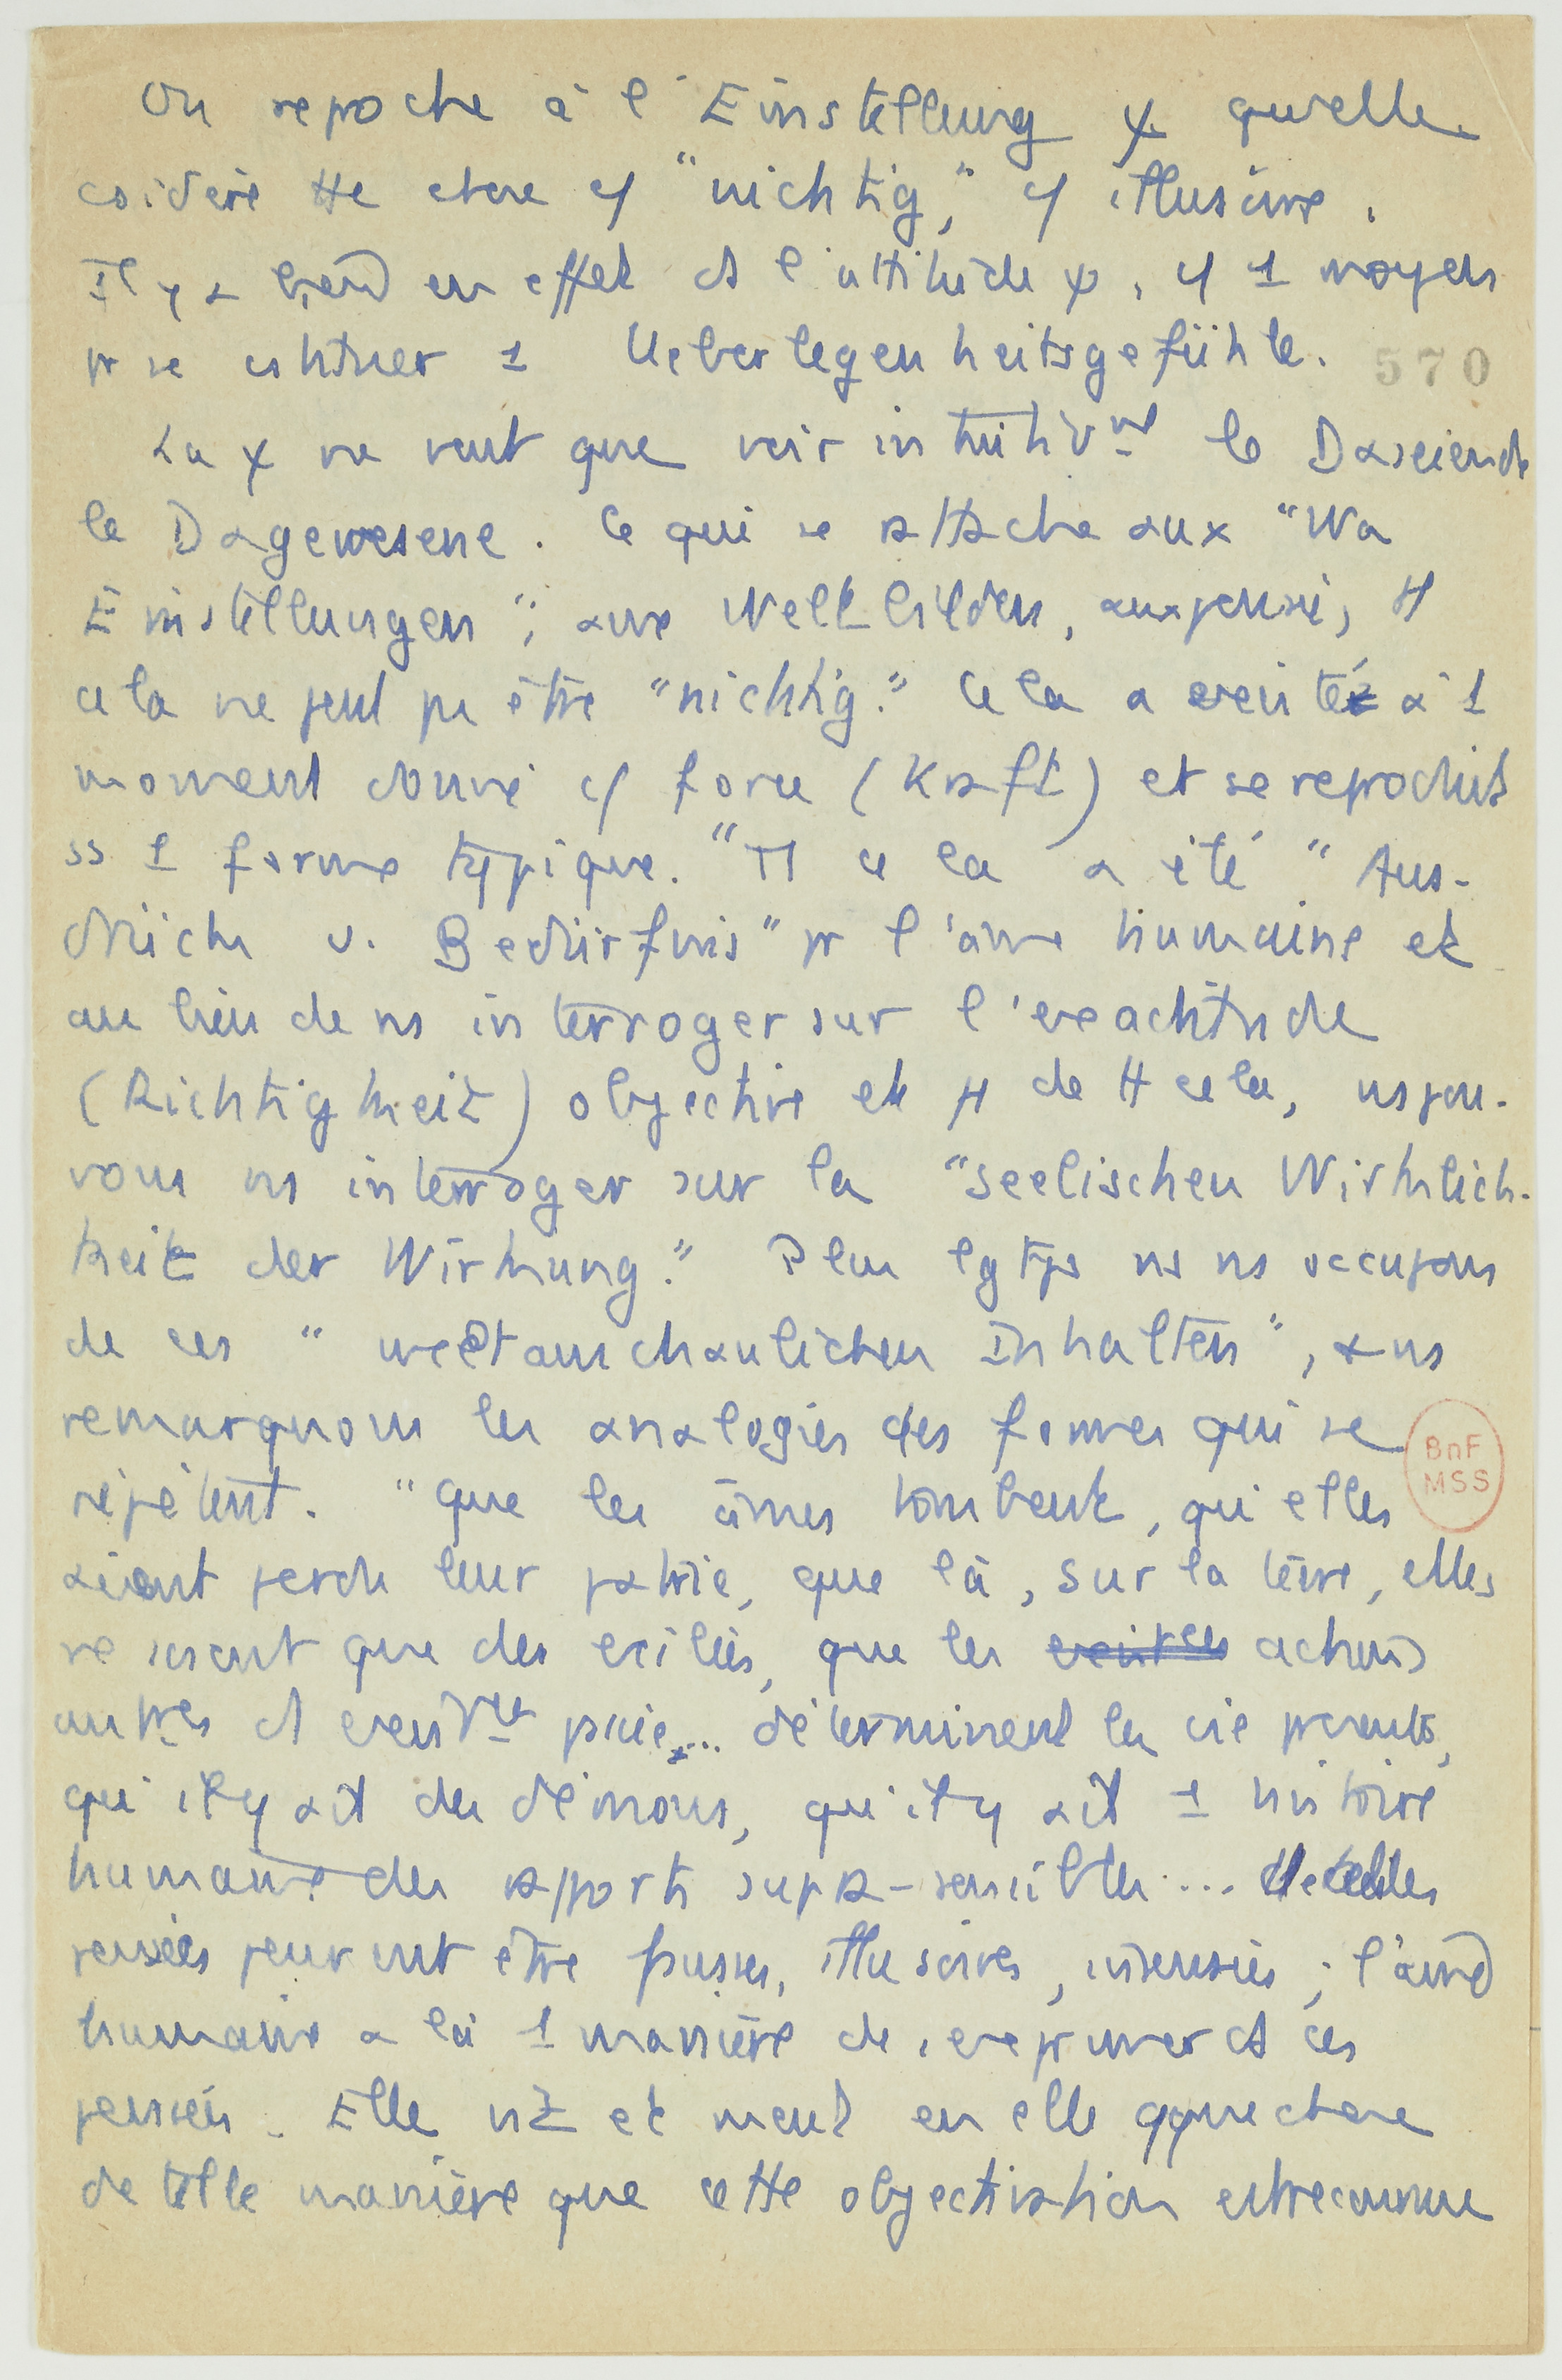 On reproche à l'Einstellung ψ qu'elle
csidère tte chose c/ "nichtig", c/ illusoire.
Il y a bien en effet ds l'attitude ψ, c/ 1 moyen
pr se cstituer 1 Ueberlegenheitsgefühle. 570
La ψ ne veut que voir intuitivmt le Daseiende
le Dagewesene. Ce qui se rattache aux "Wa
Einstellungen", aux Weltbilden, aux pensées, tt
cela ne peut pas être "nichtig." Cela a existé à 1
moment donné c/ force (Kraft) et se reproduit
ss 1 forme typique. "Tt cela a été "Aus-
drücke u. Bedürfnis" pr l'âme humaine et
au lieu de ns interroger sur l'exactitude
(Richtigkeit) objective et ψ de tt cela, ns pou-
vons ns interroger sur la "seelischen Wirklich-
keit der Wirkung." Plus lgtps ns ns occupons
de ces "weltanschaulichen Inhalten", + ns
remarquons les analogies des formes qui se
répètent. "Que les âmes tombent, qu'elles
aient perdu leur patrie, que là, sur la terre, elles
ne soient que des exilées, que les actions
autres ds existces passées... déterminent la vie présente,
qu'il y ait des démons, qu'il y ait 1 histoire
humaine des rapports supra-sensibles... de telles
pensées peuvent être fausses, illusoires, insensées; l'âme
humaine a là 1 manière de s'exprimer ds ces
pensées. Elle vit et meut en elle qque chose
de telle manière que cette objectivation est reconnue
BnF
MSS